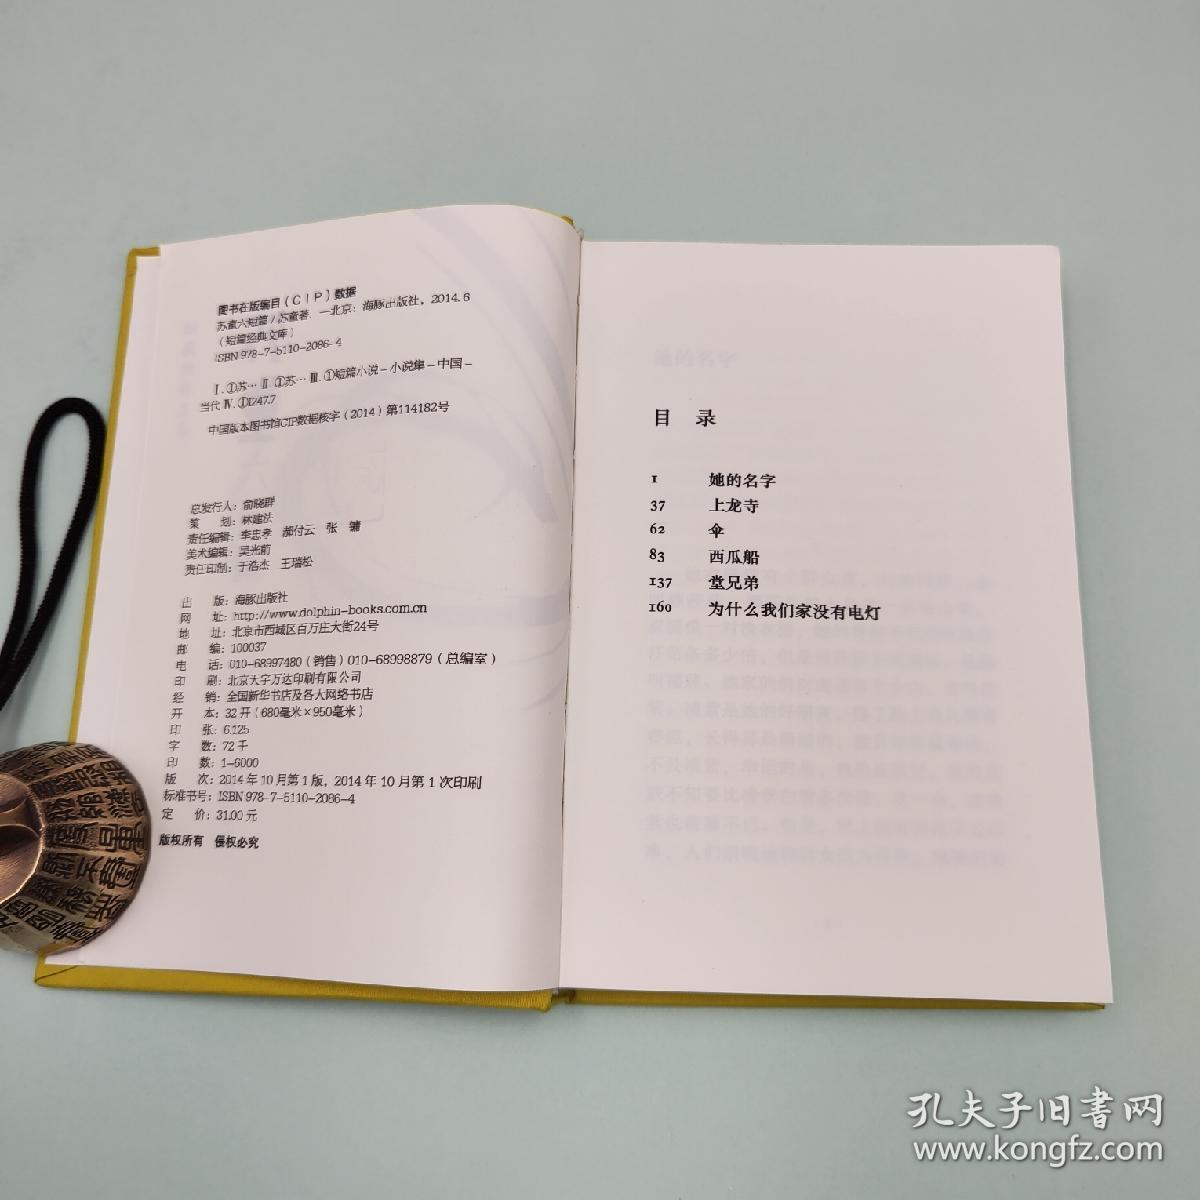 图书在版编目（CIP）数据
苏童六短篇 / 苏童著. —北京：海豚出版社，2014.6
（短篇经典文库）
ISBN 978-7-5110-2086-4
Ⅰ.①苏… Ⅱ.①苏… Ⅲ.①短篇小说－小说集－中国－
当代 Ⅳ.①I247.7
中国版本图书馆CIP数据核字（2014）第114182号
总发行人：俞晓群
策 划：林建法
责任编辑：李忠孝 郝付云 张 镛
美术编辑：吴光前
责任印制：于浩杰 王瑞松
出 版：海豚出版社
网 址：http://www.dolphin-books.com.cn
地 址：北京市西城区百万庄大街24号
邮 编：100037
电 话：010-68997480（销售）010-68998879（总编室）
印 刷：北京大宇万达印刷有限公司
经 销：全国新华书店及各大网络书店
开 本：32开（680毫米×950毫米）
印 张：6.125
字 数：72千
印 数：1-6000
版 次：2014年10月第1版，2014年10月第1次印刷
标准书号：ISBN 978-7-5110-2086-4
定 价：31.00元
版权所有 侵权必究
目 录
1 她的名字
37 上龙寺
62 伞
83 西瓜船
137 堂兄弟
160 为什么我们家没有电灯
孔夫子旧书网
www.kongfz.com